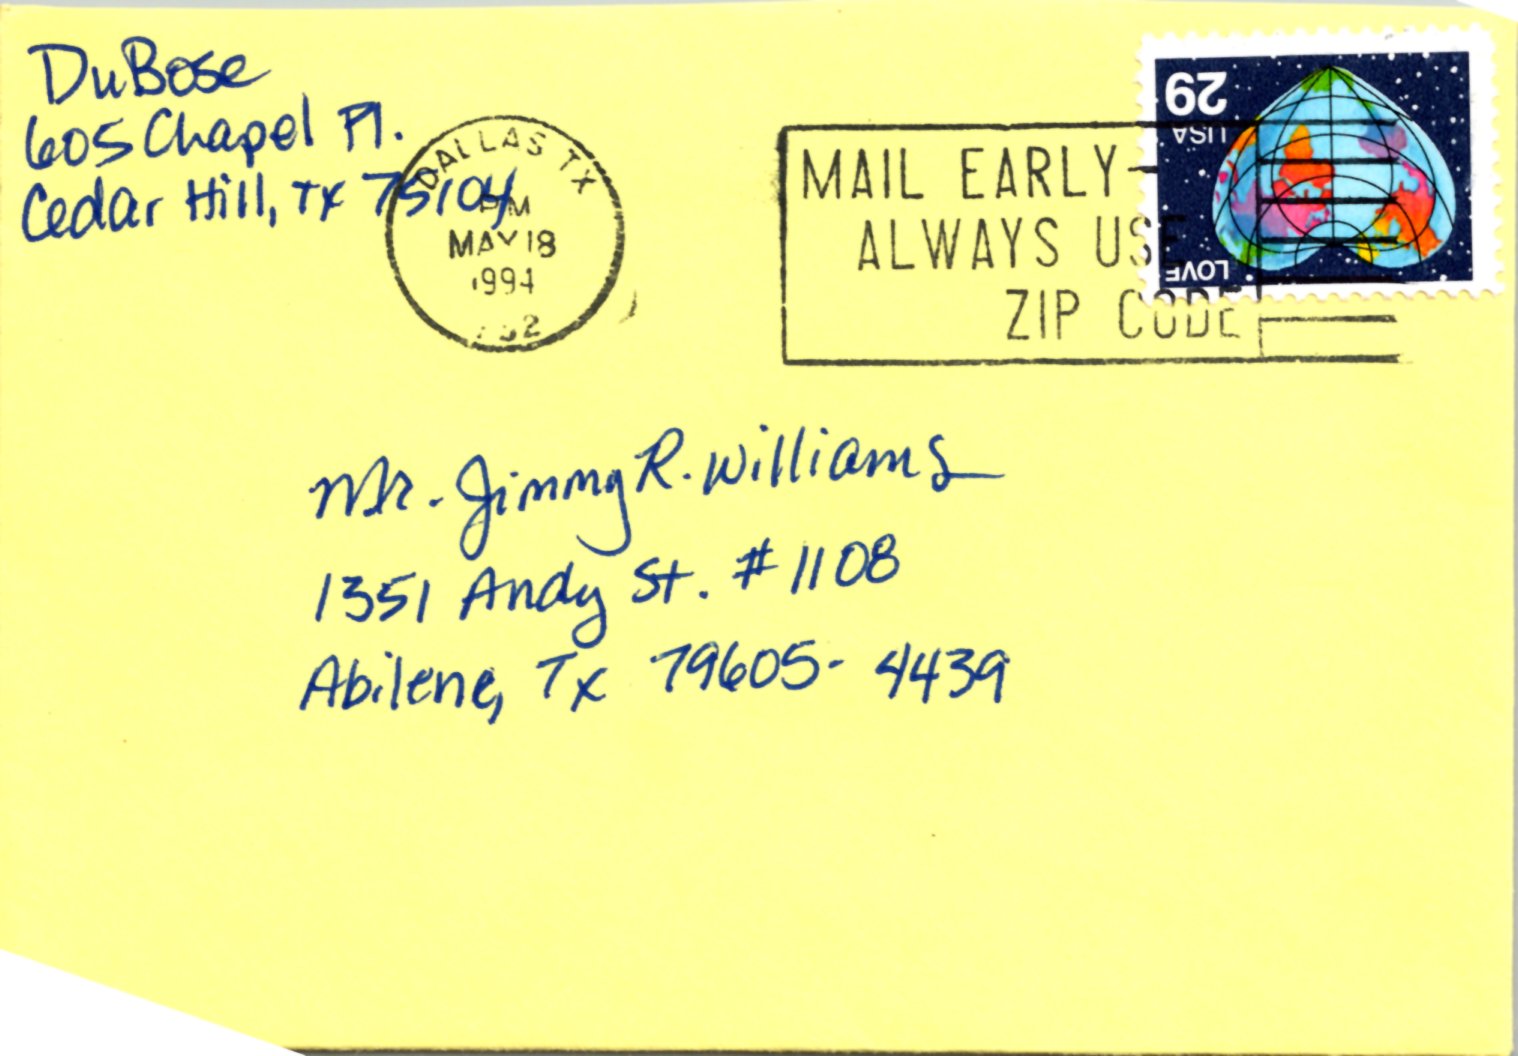 DuBose
605 Chapel Pl.
Cedar Hill, TX 75104
DALLAS TX
PM
MAY 18
1994
MAIL EARLY-
ALWAYS USE
ZIP CODE
29
USA
LOVE
Mr. Jimmy R. Williams
1351 Andy St. #1108
Abilene, Tx 79605-4439